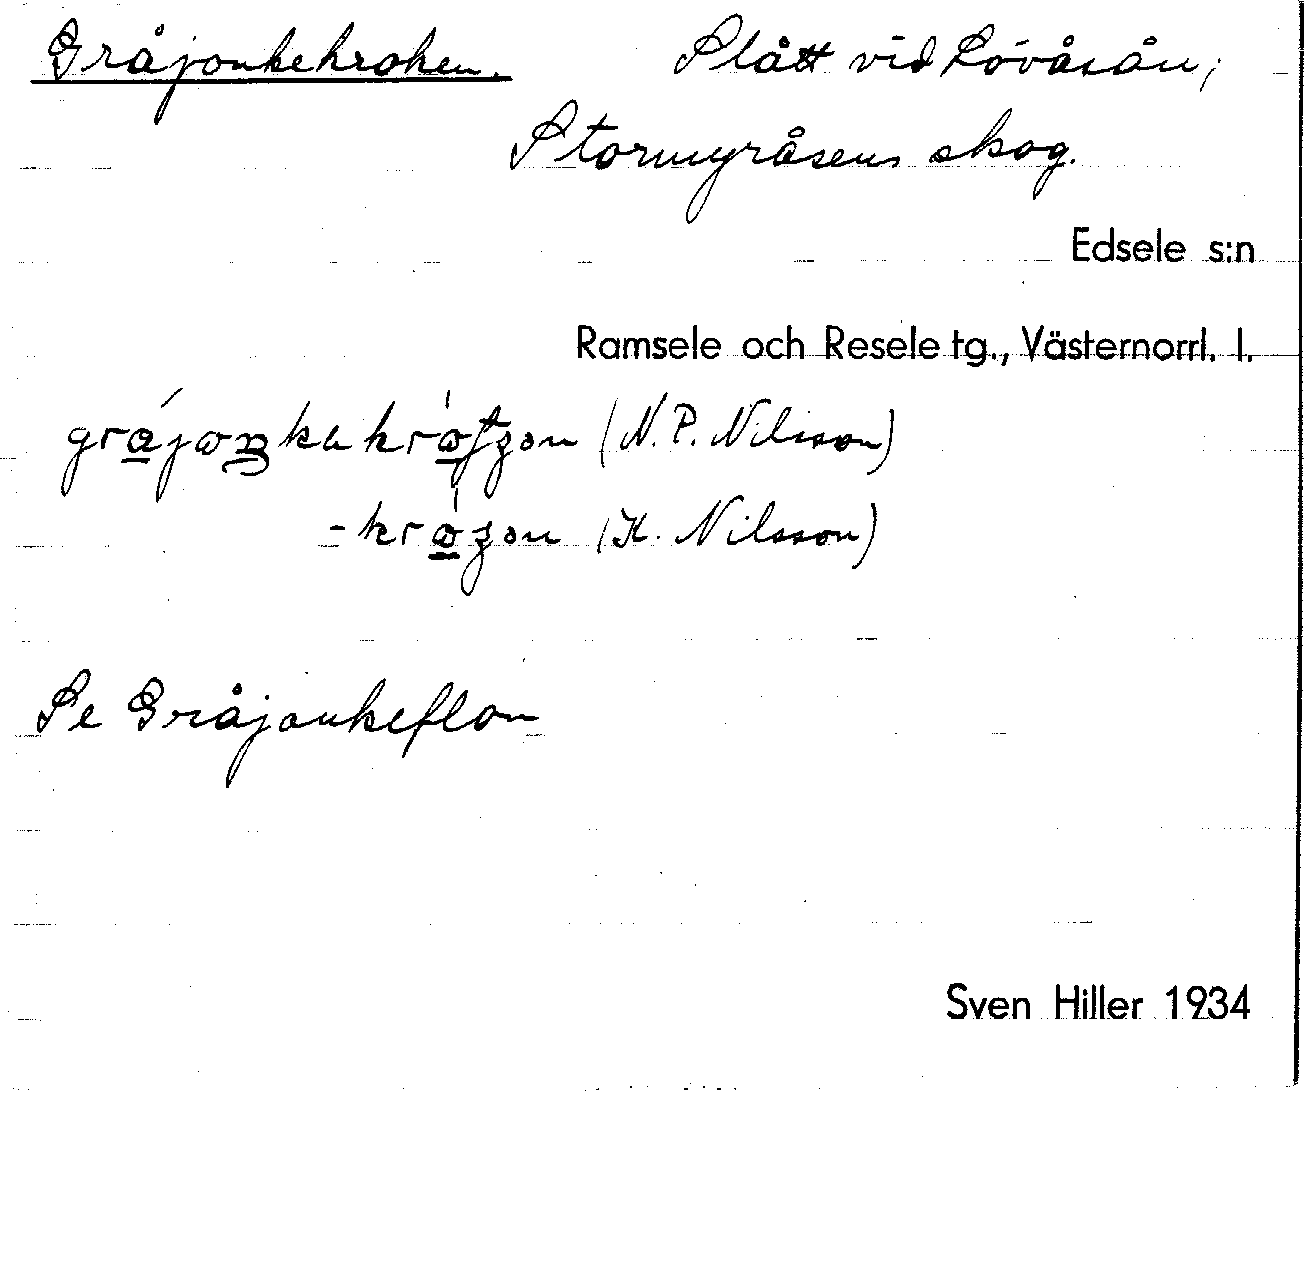 Gråjonkekroken. Slått vid Lövåsån;
Stormyråsens skog.
Edsele s:n
Ramsele och Resele tg., Västernorrl. l.
(N. P. Nilsson)
(K. Nilsson)
Se Gråjonkeflon
Sven Hiller 1934